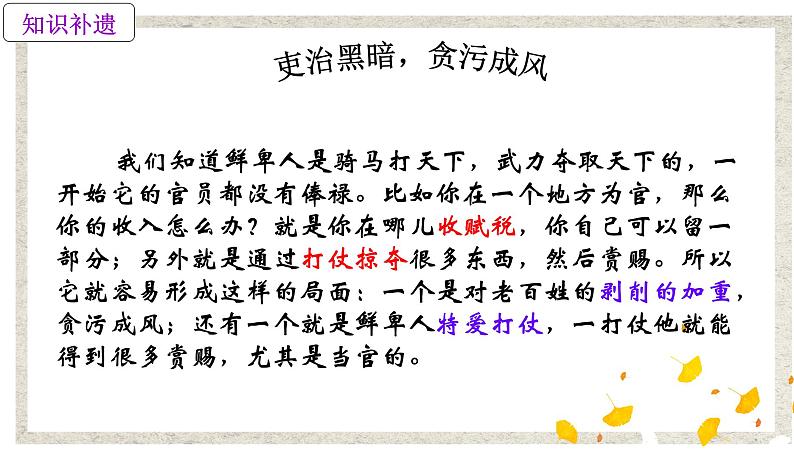 知识补遗
吏治黑暗，贪污成风
我们知道鲜卑人是骑马打天下，武力夺取天下的，一
开始它的官员都没有俸禄。比如你在一个地方为官，那么
你的收入怎么办？就是你在哪儿收赋税，你自己可以留一
部分；另外就是通过打仗掠夺很多东西，然后赏赐。所以
它就容易形成这样的局面：一个是对老百姓的剥削的加重，
贪污成风；还有一个就是鲜卑人特爱打仗，一打仗他就能
得到很多赏赐，尤其是当官的。